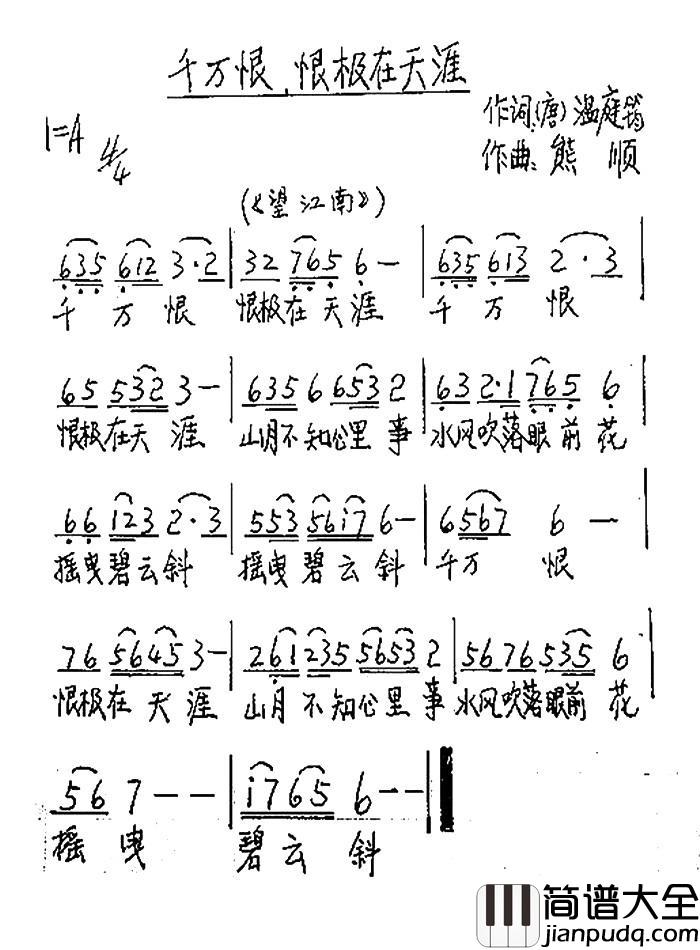 千万恨、恨极在天涯
作词:(唐)温庭筠
1=A 4/4
作曲:熊 顺
(《望江南》)
635 612 3·2 | 32 765 6 — | 635 613 2·3 |
千 万 恨 恨极在天涯 千 万 恨
65 532 3 — | 635 6 653 2 | 632·1 765 6
恨极在天涯 山月不知心里事 水风吹落眼前花
66 123 2·3 | 553 5617 6 — | 6567 6 —
摇曳碧云斜 摇曳碧云斜 千万 恨
76 5645 3 — | 261 235 5653 2 | 5676535 6
恨极在天涯 山月不知心里事 水风吹落眼前花
56 7 — — | 1765 6 — — |
摇 曳 碧 云 斜
简谱大全
jianpudq.com